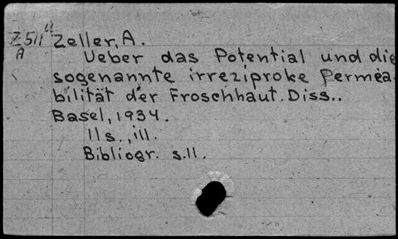 Z511 4 Zeller, A.
A Ueber das Potential und die
sogenannte irreziproke Permea-
bilität der Froschhaut. Diss..
Basel, 1934.
11 s., ill.
Bibliogr. s.11.